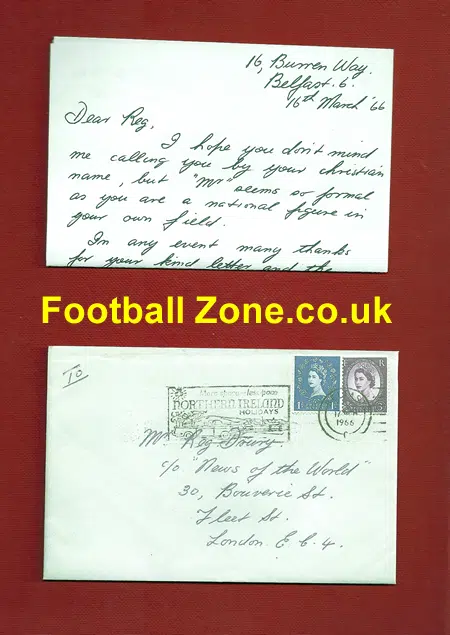 16, Burren Way.
Belfast. 6.
16th March '66
Dear Reg,
I hope you don't mind
me calling you by your christian
name, but "Mr" seems so formal
as you are a national figure in
your own field.
In any event many thanks
for your kind letter and the
Football Zone.co.uk
To
NORTHERN IRELAND
HOLIDAYS
1966
Mr Reg Drury
c/o "News of the World"
30, Bouverie St.
Fleet St.
London. E. C. 4.